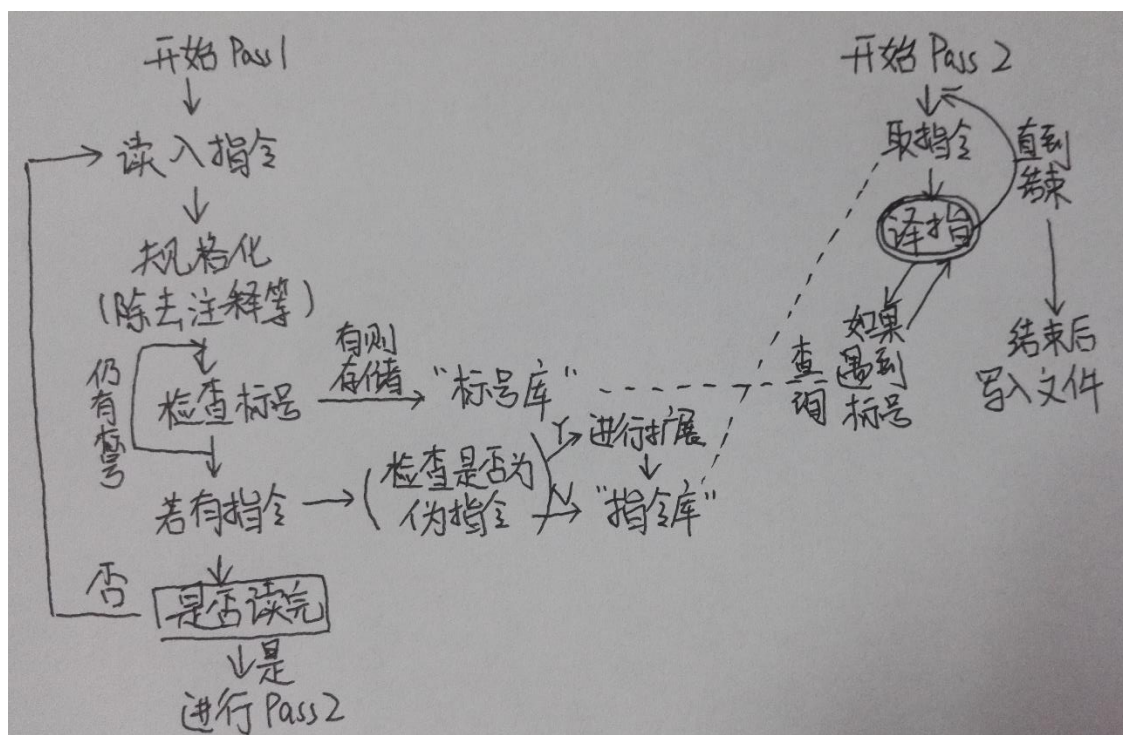 开始 Pass1
读入指令
规格化
(除去注释等)
仍有标号
检查标号
有则
存储
"标号库"
若有指令
(检查是否为
伪指令)
Y
进行扩展
N
"指令库"
否
是否读完
是
进行 Pass2
开始 Pass 2
取指令
译指
直到
结束
如果
遇到
标号
查
询
结束后
写入文件